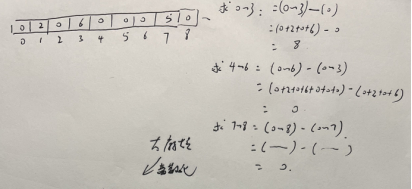 0 2 0 6 0 0 0 5 0
0 1 2 3 4 5 6 7 8
求 0~3 : =(0~3)-(0)
=(0+2+0+6)-0
= 8
求 4~6 = (0~6)-(0~3)
=(0+2+0+6+0+0+0)-(0+2+0+6)
= 0
求 7~8 = (0~8)-(0~7)
=(—)-(—)
= 0.